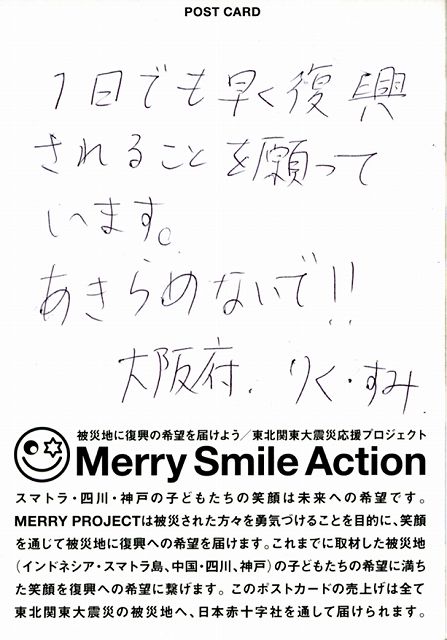 POST CARD
1日でも早く復興
されることを願って
います。
あきらめないで!!
大阪府. りく・すみ
被災地に復興の希望を届けよう／東北関東大震災応援プロジェクト
Merry Smile Action
スマトラ・四川・神戸の子どもたちの笑顔は未来への希望です。
MERRY PROJECTは被災された方々を勇気づけることを目的に、笑顔
を通じて被災地に復興への希望を届けます。これまでに取材した被災地
(インドネシア・スマトラ島、中国・四川、神戸)の子どもたちの希望に満ち
た笑顔を復興への希望に繋げます。このポストカードの売上げは全て
東北関東大震災の被災地へ、日本赤十字社を通して届けられます。